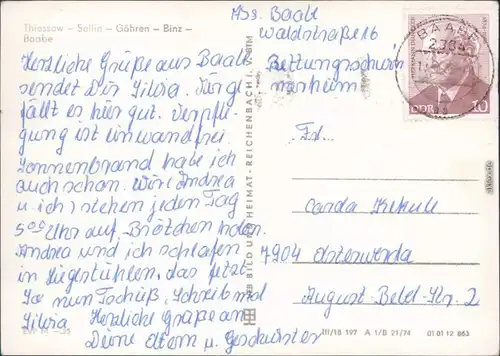 Thiessow - Sellin - Göhren - Binz -
Baabe
Herzliche Grüße aus Baabe
sendet Dir Silvia. Mir ge-
fällt es hier gut. Verpfle-
gung ist einwandfrei.
Sonnenbrand habe ich
auch schon. Wir Andrea
u. ich stehen jeden Tag
5⁰⁰ Uhr auf Brötchen holen.
Andrea und ich schlafen
in Liegestühlen, das fetzt.
So nun Tschüß, Schreib mal
Silvia Herzliche Grüße an
Deine Eltern u. Geschwister
EVP M -,35
VEB BILD UND HEIMAT - REICHENBACH I. V.
Baabe
Waldstraße 16
Rettungsschwim
merheim
BAABE
DDR 10
Frl.
7904 Elsterwerda
August-Bebel-Str. 2
III/18 197 A 1/B 21/74 01 01 12 863